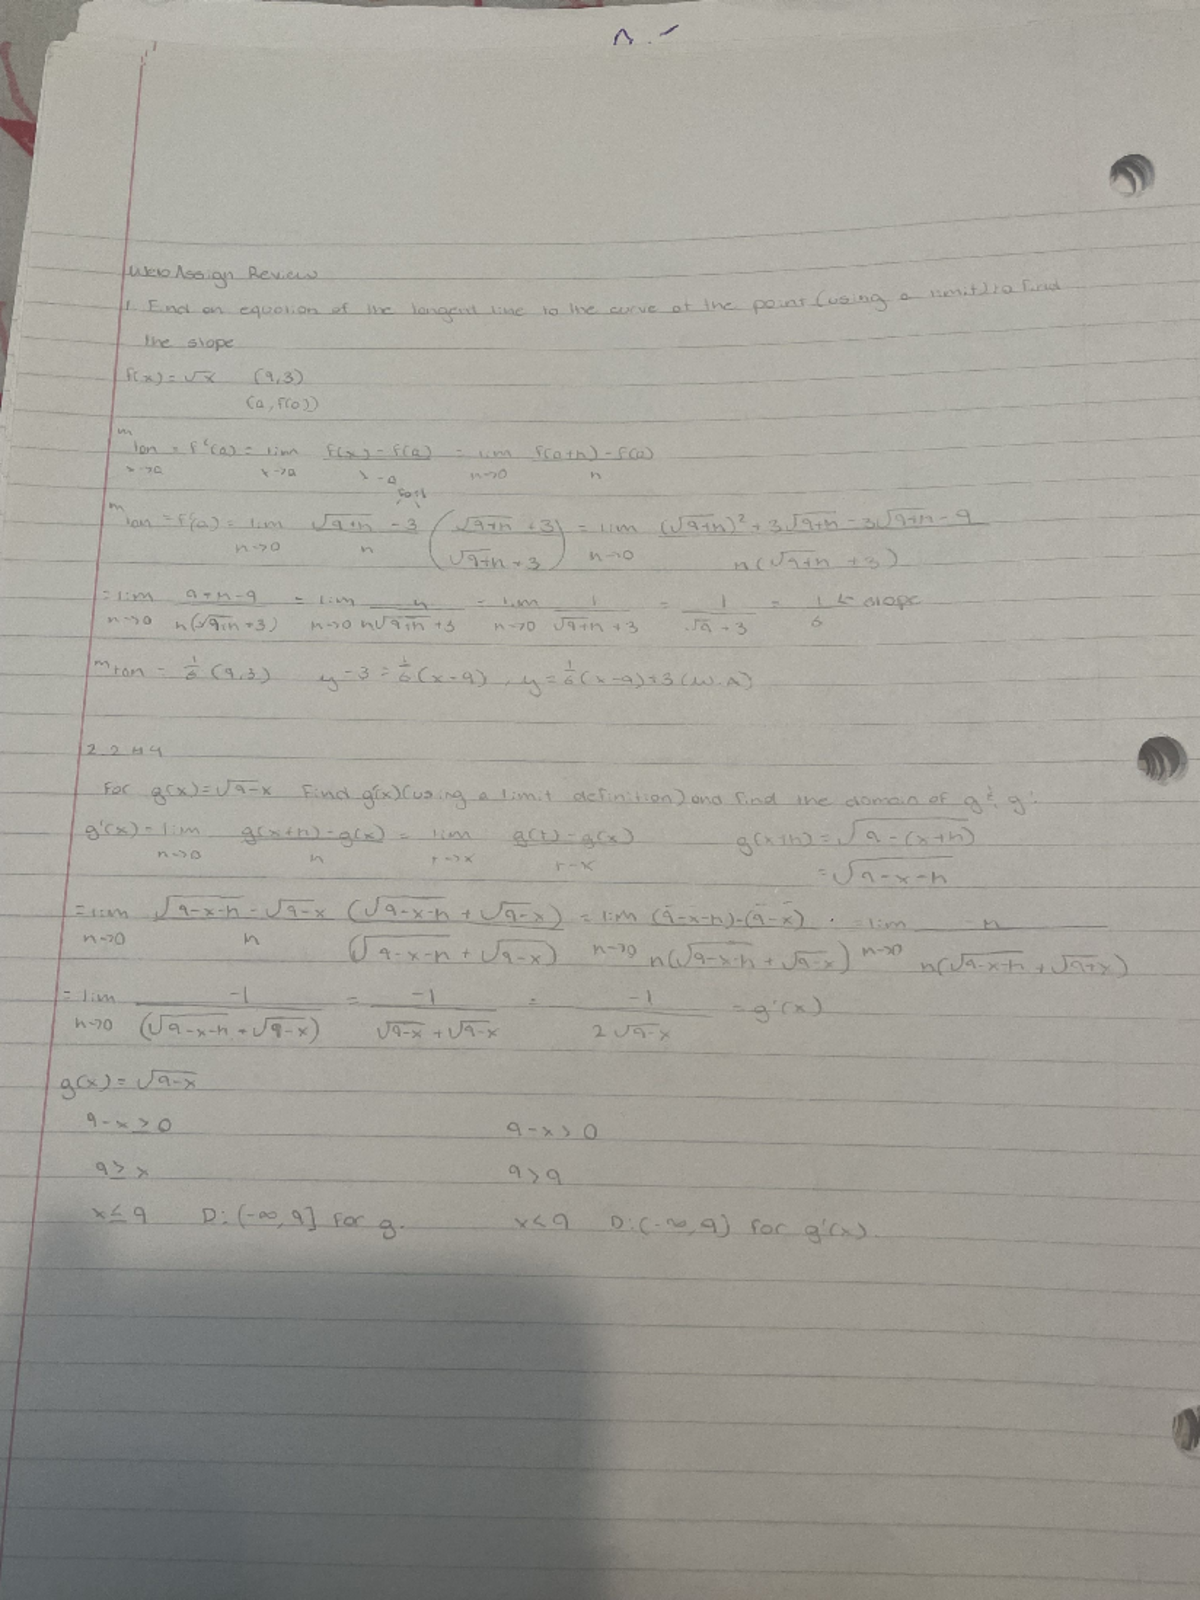 WebAssign Review
1. Find an equation of the tangent line to the curve at the point (using a limit) to find
the slope
f(x) = √x (9,3)
(a, f(a))
m tan = f'(a) = lim x→a f(x) - f(a) / x - a = lim h→0 f(a+h) - f(a) / h
x→a
m tan = f'(a) = lim h→0 √9+h - 3 / h (√9+h + 3 / √9+h + 3) = lim h→0 (√9+h)² + 3√9+h - 3√9+h - 9 / h(√9+h + 3)
= lim h→0 9+h-9 / h(√9+h + 3) = lim h→0 h / h√9+h + 3 = lim h→0 1 / √9+h + 3 = 1 / √9 + 3 = 1/6 ← slope
m tan = 1/6 (9,3) y - 3 = 1/6 (x-9), y = 1/6 (x-9) + 3 (W.A)
2.2 #4
For g(x) = √9-x Find g'(x) (using a limit definition) and find the domain of g & g'
g'(x) = lim h→0 g(x+h) - g(x) / h = lim t→x g(t) - g(x) / t-x g(x+h) = √9-(x+h)
= √9-x-h
= lim h→0 √9-x-h - √9-x / h (√9-x-h + √9-x) / (√9-x-h + √9-x) = lim h→0 (9-x-h)-(9-x) / h(√9-x-h + √9-x) = lim h→0 -h / h(√9-x-h + √9+x)
= lim h→0 -1 / (√9-x-h + √9-x) = -1 / √9-x + √9-x = -1 / 2√9-x = g'(x)
g(x) = √9-x
9-x ≥ 0 9-x > 0
9 ≥ x 9 > 9
x ≤ 9 D: (-∞, 9] for g. x < 9 D: (-∞, 9) for g'(x).